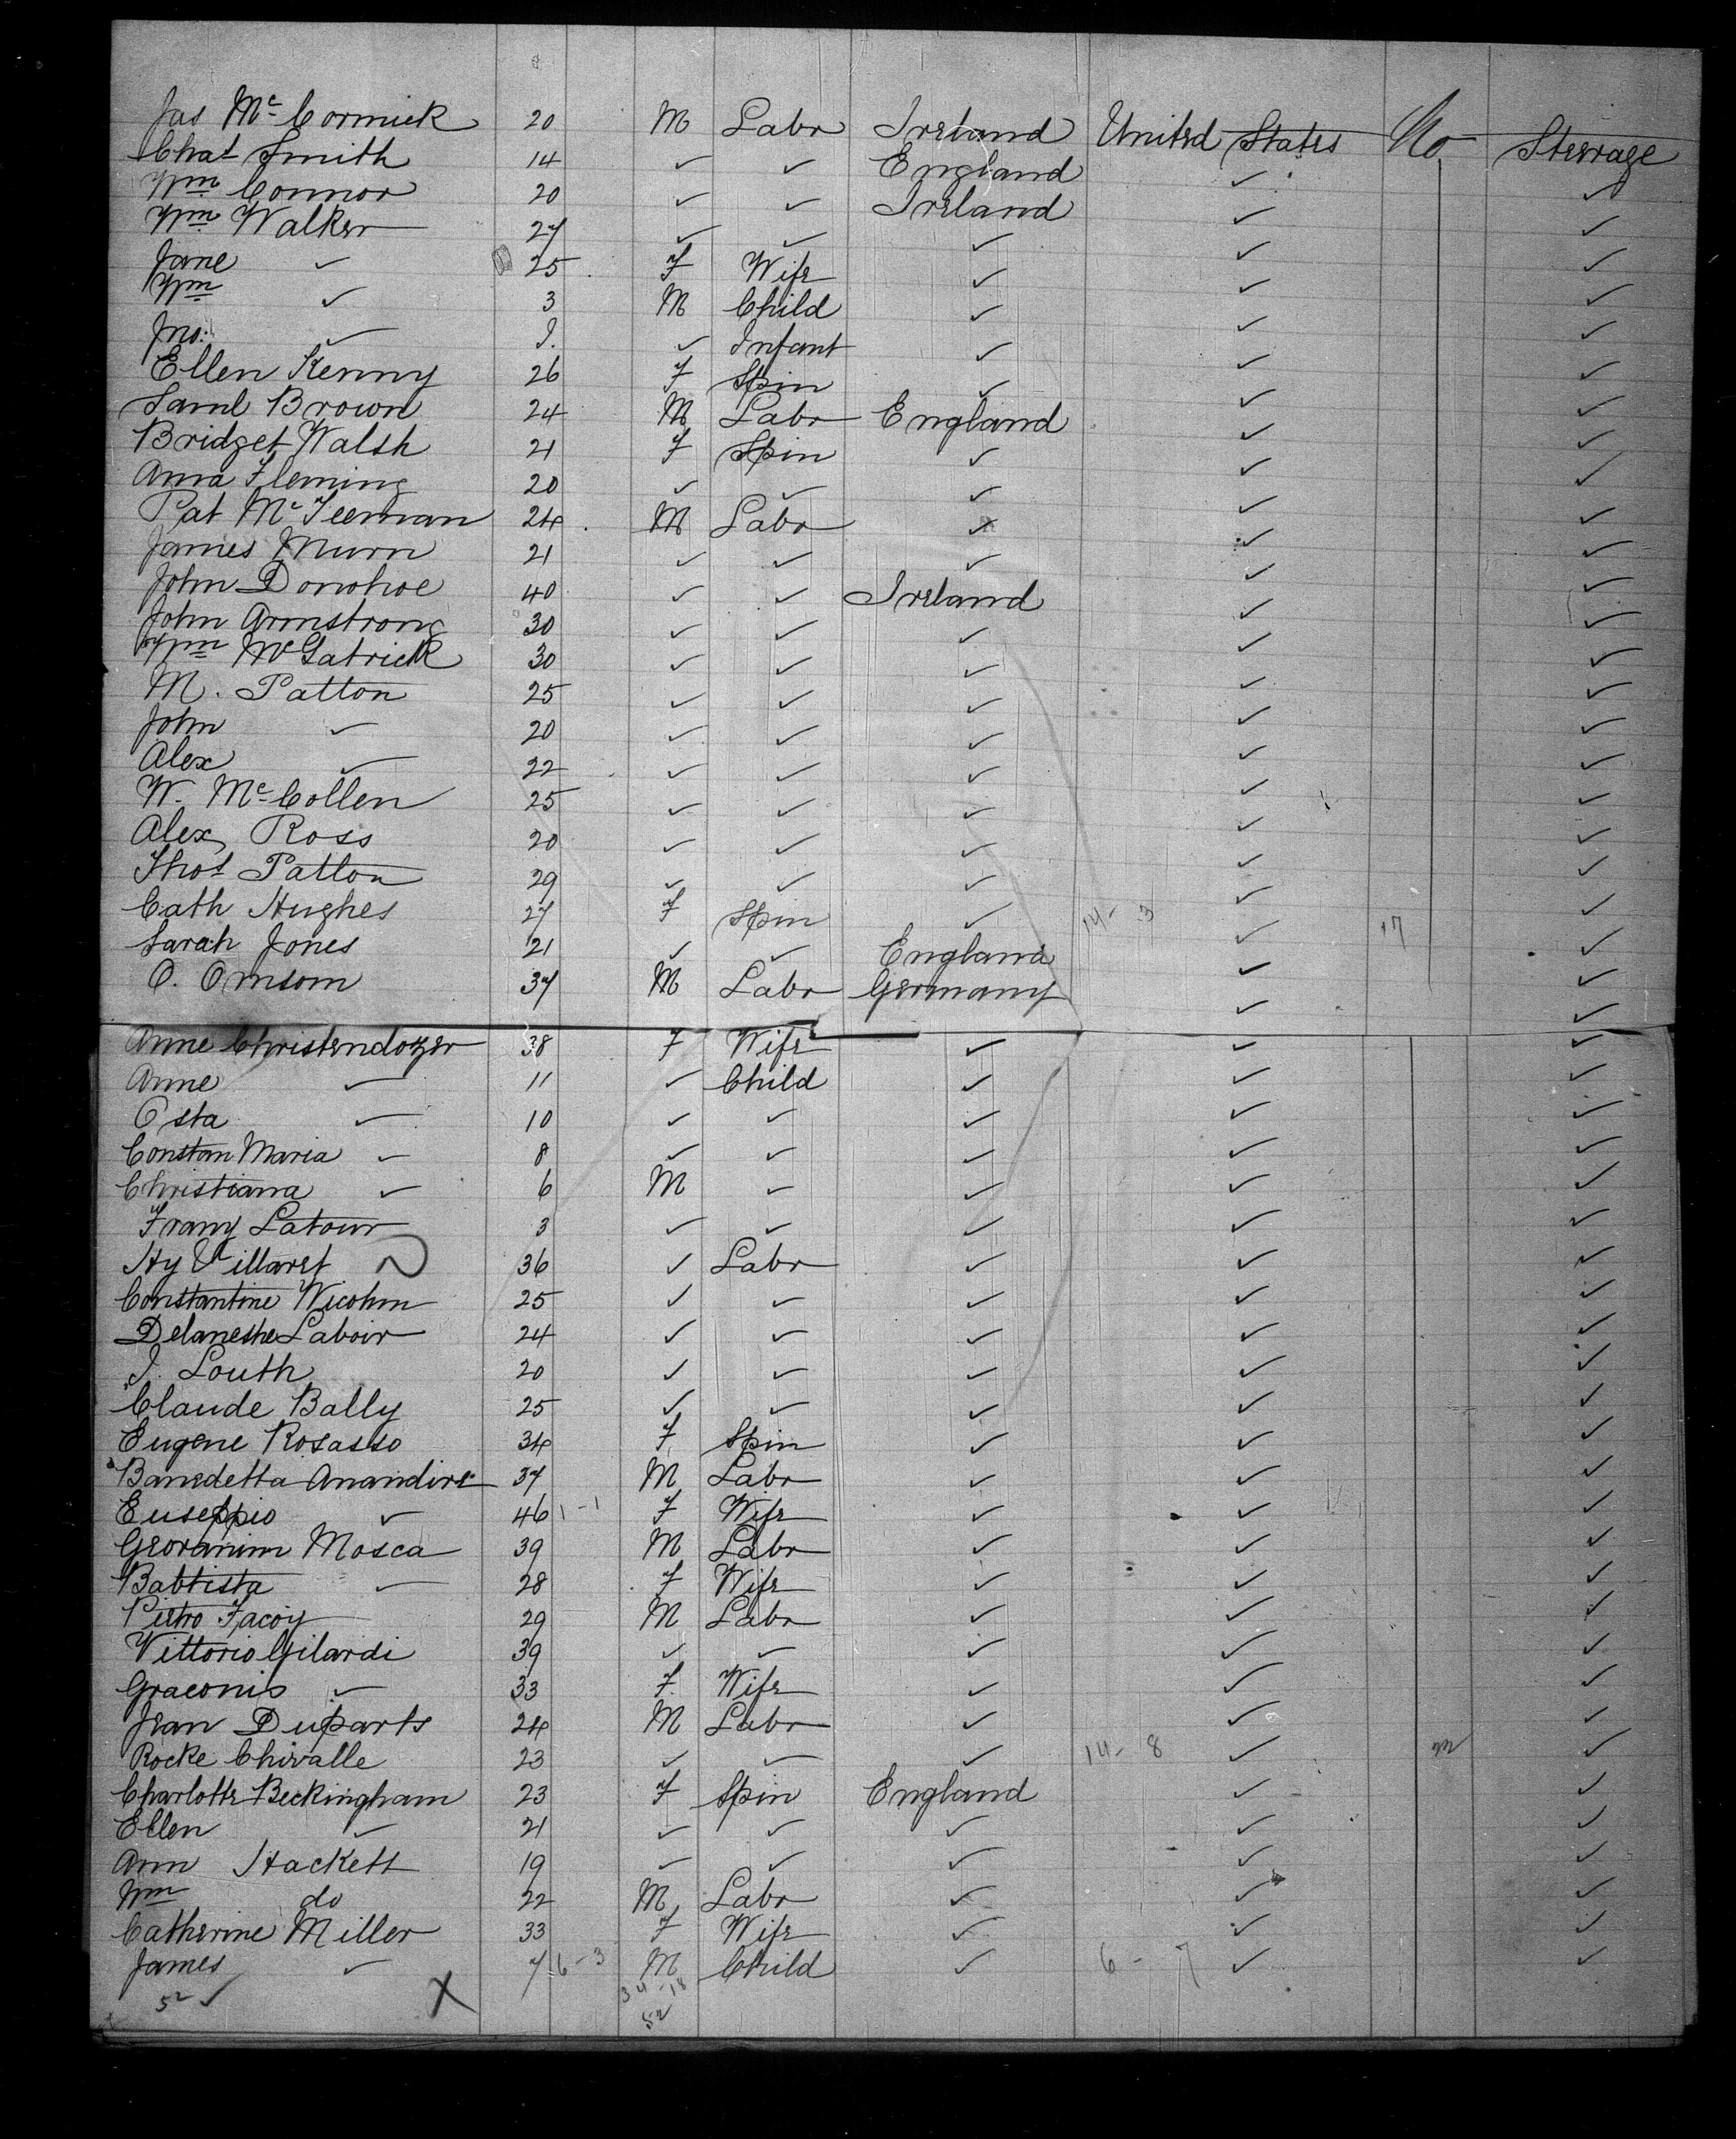 Jas McCormick 20 M Labr Ireland United States No Steerage
Chas Smith 14 ✓ ✓ England ✓ ✓
Wm Connor 20 ✓ ✓ Ireland ✓ ✓
Wm Walker 27 ✓ ✓ ✓ ✓ ✓
Jane ✓ 25 F Wife ✓ ✓ ✓
Wm ✓ 3 M Child ✓ ✓ ✓
Jno. ✓ I. ✓ Infant ✓ ✓ ✓
Ellen Kenny 26 F Spin ✓ ✓ ✓
Saml Brown 24 M Labr England ✓ ✓
Bridget Walsh 21 F Spin ✓ ✓ ✓
Anna Fleming 20 ✓ ✓ ✓ ✓ ✓
Pat McTeernan 24 M Labr ✓ ✓ ✓
James Murn 21 ✓ ✓ ✓ ✓ ✓
John Donohoe 40 ✓ ✓ Ireland ✓ ✓
John Armstrong 30 ✓ ✓ ✓ ✓ ✓
Wm McGatrick 30 ✓ ✓ ✓ ✓ ✓
M. Patton 25 ✓ ✓ ✓ ✓ ✓
John ✓ 20 ✓ ✓ ✓ ✓ ✓
Alex ✓ 22 ✓ ✓ ✓ ✓ ✓
W. McCollen 25 ✓ ✓ ✓ ✓ ✓
Alex Ross 20 ✓ ✓ ✓ ✓ ✓
Thos Patton 29 ✓ ✓ ✓ ✓ ✓
Cath Hughes 27 F Spin ✓ 14-3 ✓ 17 ✓
Sarah Jones 21 ✓ ✓ England ✓ ✓
O. Omsom 37 M Labr Germany ✓ ✓
Anne Christendozer 38 F Wife ✓ ✓ ✓
Anne ✓ 11 ✓ Child ✓ ✓ ✓
Osta ✓ 10 ✓ ✓ ✓ ✓ ✓
Constan Maria ✓ 8 ✓ ✓ ✓ ✓ ✓
Christiana ✓ 6 M ✓ ✓ ✓ ✓
Frany Latour 3 ✓ ✓ ✓ ✓ ✓
Hy Villaret 36 ✓ Labr ✓ ✓ ✓
Constantine Wicohm 25 ✓ ✓ ✓ ✓ ✓
Delanesthe Laboir 24 ✓ ✓ ✓ ✓ ✓
J. Louth 20 ✓ ✓ ✓ ✓ ✓
Claude Bally 25 ✓ ✓ ✓ ✓ ✓
Eugene Rosasso 34 F Spin ✓ ✓ ✓
Banedetta Anandire 37 M Labr ✓ ✓ ✓
Euseppio ✓ 46 1-1 F Wife ✓ ✓ ✓
Georanim Mosca 39 M Labr ✓ ✓ ✓
Babtista ✓ 28 F Wife ✓ ✓ ✓
Pietro Facoy 29 M Labr ✓ ✓ ✓
Vittorio Gilardi 39 ✓ ✓ ✓ ✓ ✓
Graconis ✓ 33 F. Wife ✓ ✓ ✓
Jean Duparts 24 M Labr ✓ ✓ ✓
Rocke Chivalle 23 ✓ ✓ ✓ 14-8 ✓ ✓
Charlotte Beckingham 23 F Spin England ✓ ✓
Ellen ✓ 21 ✓ ✓ ✓ ✓ ✓
Ann Hackett 19 ✓ ✓ ✓ ✓ ✓
Wm do 22 M Labr ✓ ✓ ✓
Catherine Miller 33 F Wife ✓ ✓ ✓
James ✓ 7 6-3 M Child ✓ 6-7 ✓ ✓
52 ✓ X 34-18
52